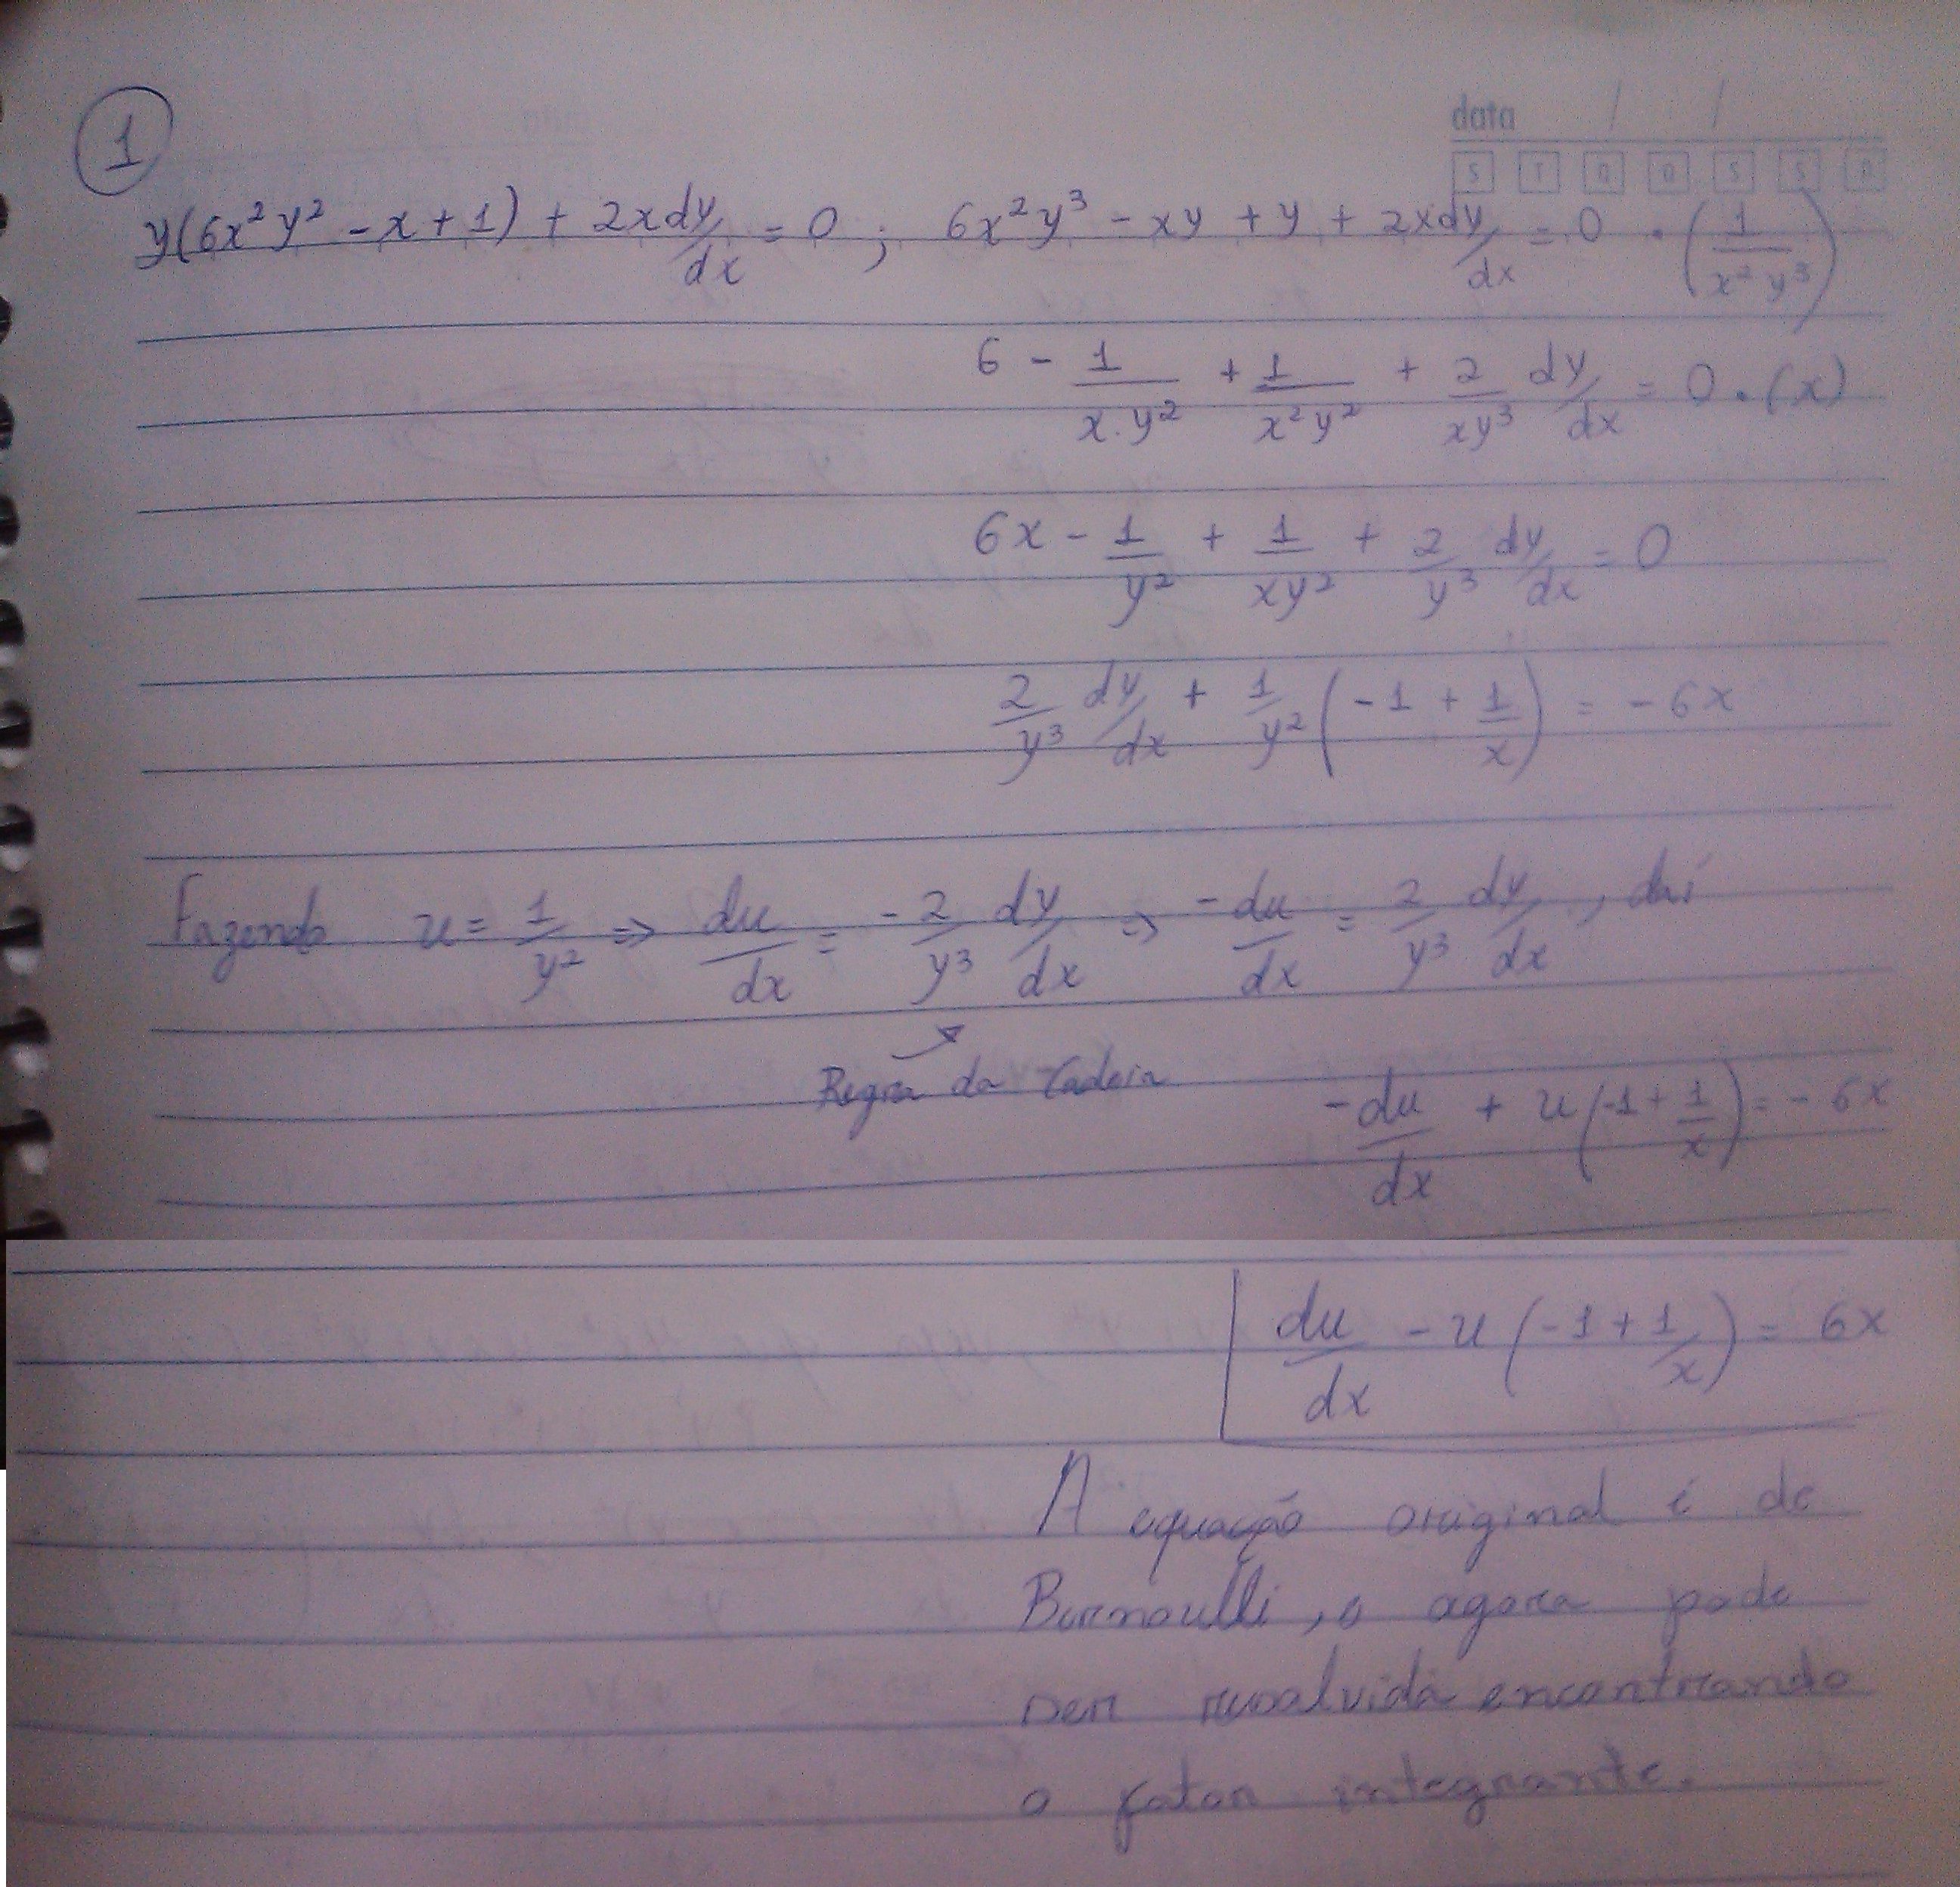 1
data / /
S T Q Q S S D
y(6x² y² - x + 1) + 2x dy/dx = 0 ; 6x² y³ - xy + y + 2x dy/dx = 0 . (1/(x² y³))
6 - 1/(x . y²) + 1/(x² y²) + 2/(xy³) dy/dx = 0 . (x)
6x - 1/y² + 1/(xy²) + 2/y³ dy/dx = 0
2/y³ dy/dx + 1/y² (-1 + 1/x) = -6x
Fazendo u = 1/y² => du/dx = -2/y³ dy/dx => -du/dx = 2/y³ dy/dx , daí
Regra da Cadeia
-du/dx + u(-1 + 1/x) = -6x
du/dx - u(-1 + 1/x) = 6x
A equação original é de
Bernoulli, e agora pode
ser resolvida encontrando
o fator integrante.